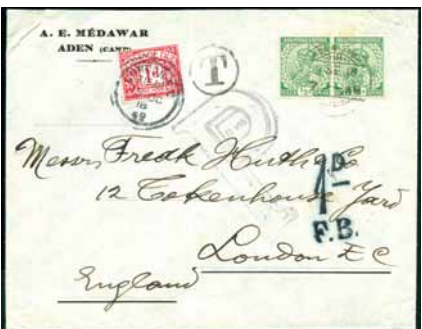 A. E. MÉDAWAR
ADEN (CAMP)
T
Messrs Fredk Huth & Co
12 Tokenhouse Yard
London E C
England
1D
F.B.